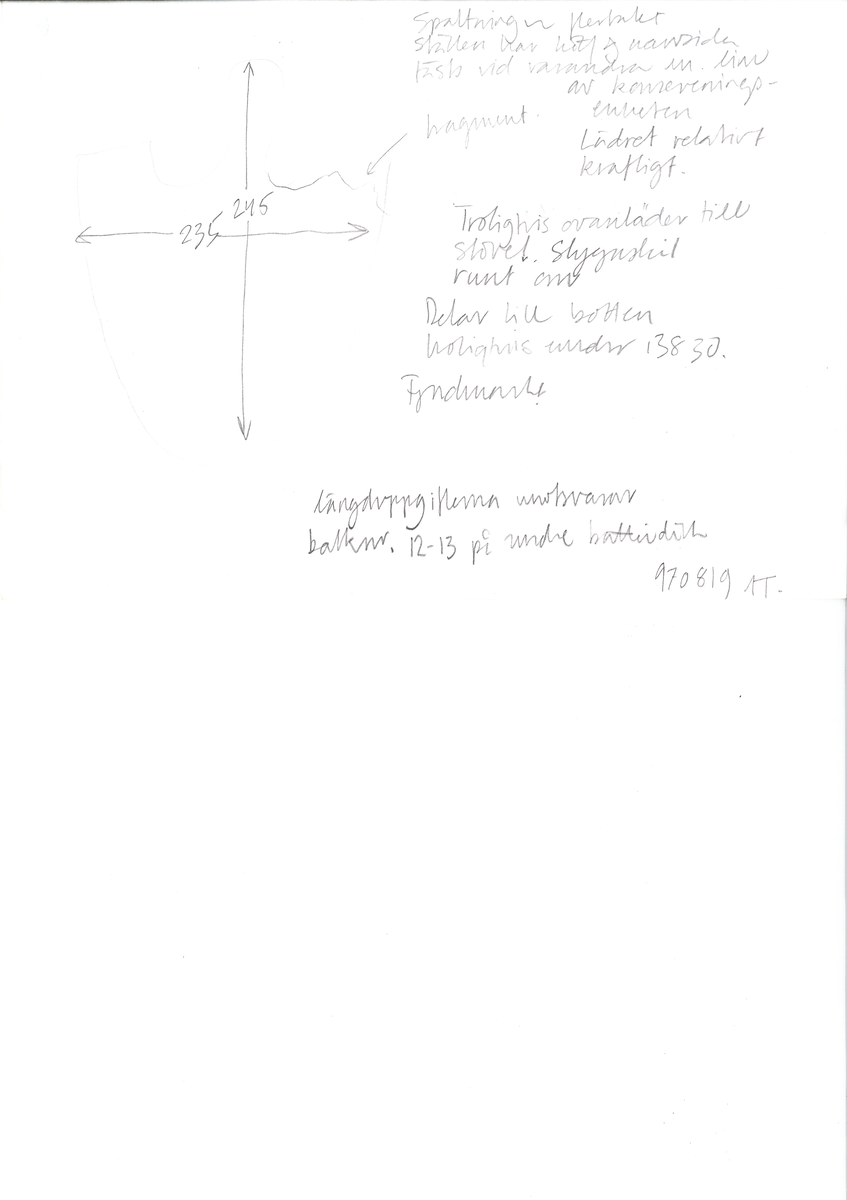 Spaltning flertalet
ställen har kött & narvsida
fästs vid varandra m. lim
av konserverings-
enheten
fragment.
Lädret relativt
kraftigt.
245
235
Troligtvis ovanläder till
stövel. Stygnshål
runt om
Delar till botten
troligtvis under 13830.
Fyndmärkt
längduppgifterna motsvarar
balknr. 12-13 på undre batteridäck
970819 AT.